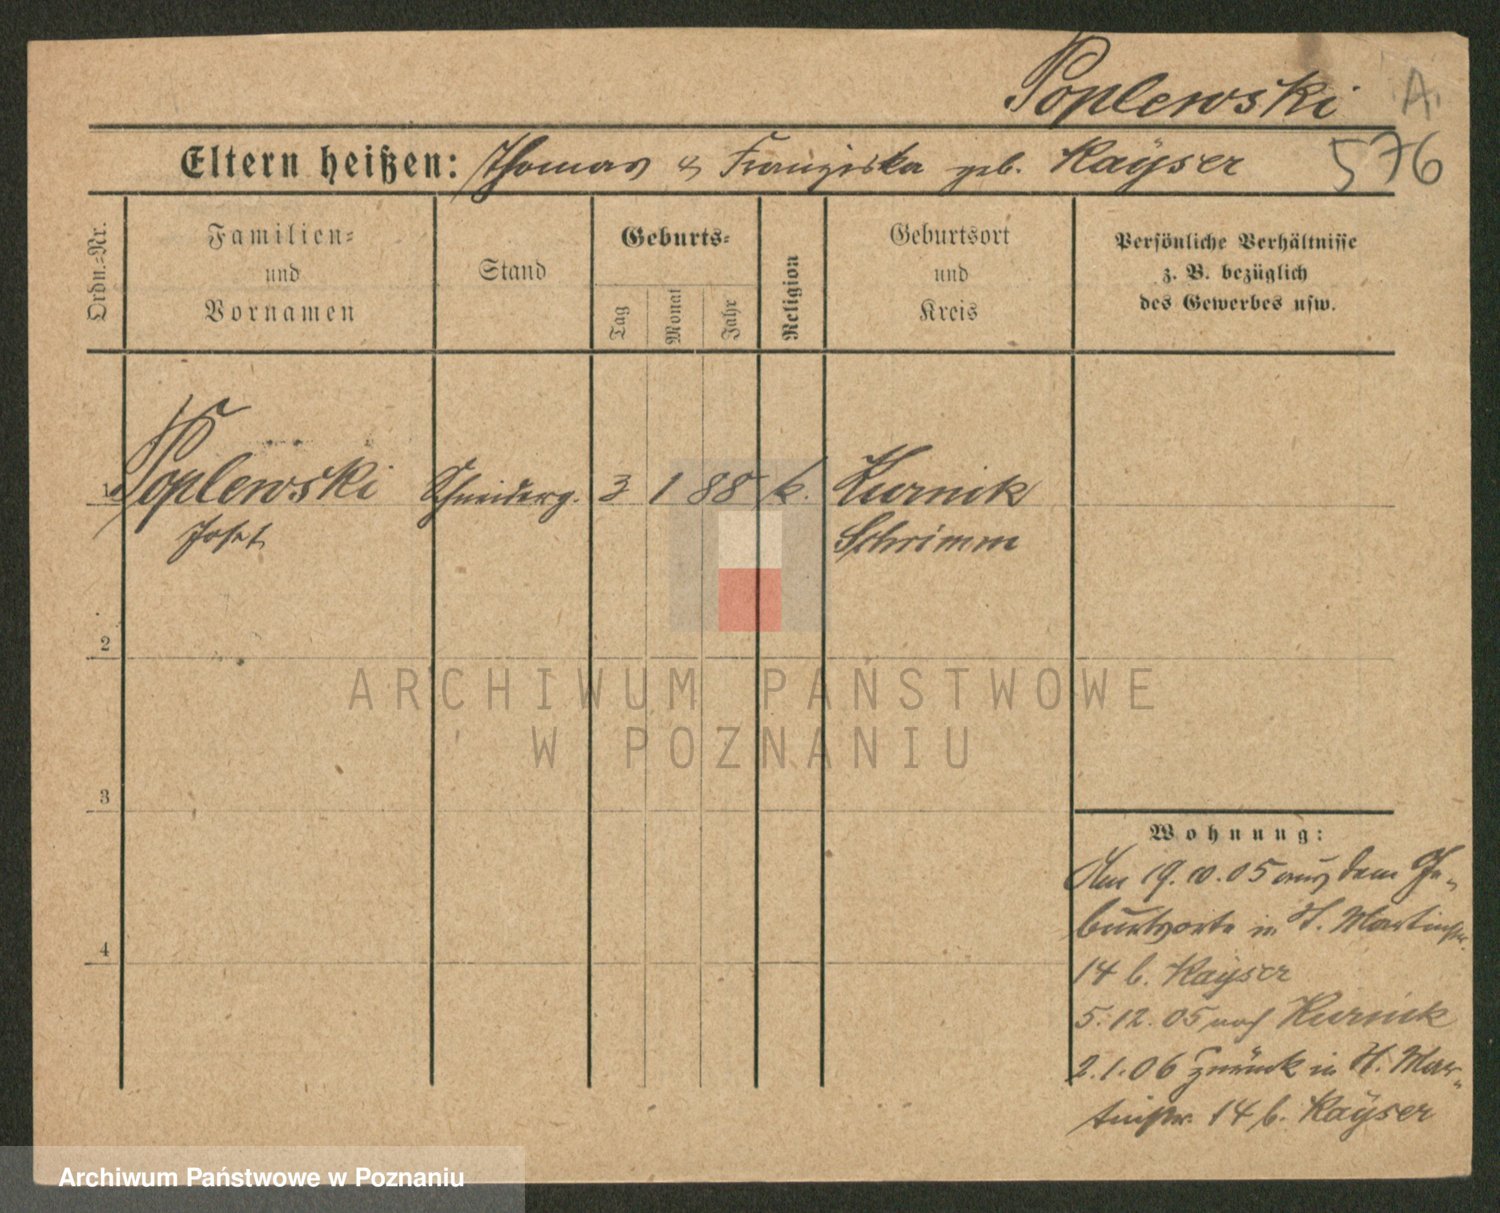 Poplewski A.
Eltern heißen: Thomas & Franziska geb. Kaÿser 576
Ordn.-Nr.
Familien-
und
Vornamen
Stand
Geburts-
Tag
Monat
Jahr
Religion
Geburtsort
und
Kreis
Persönliche Verhältnisse
z. B. bezüglich
des Gewerbes usw.
1 Poplewski Schneiderg. 3 1 88 k. Kurnik
Josef Schrimm
2
3
4
ARCHIWUM PAŃSTWOWE
W POZNANIU
Wohnung:
Am 19.10.05 aus dem Ge-
burtsorte in St. Martinstr.
14 b. Kaÿser
5.12.05 nach Kurnick
2.1.06 zurück in St. Mar-
tinstr. 14 b. Kaÿser
Archiwum Państwowe w Poznaniu